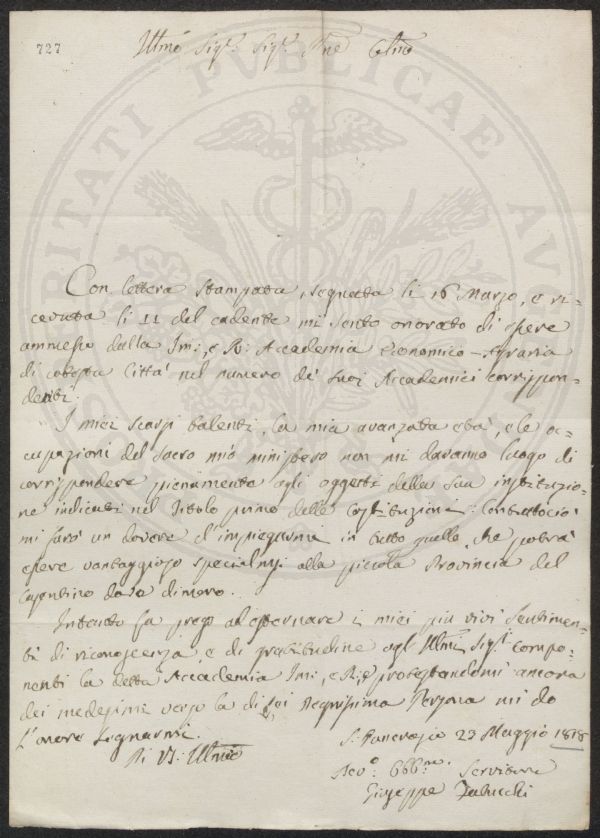 727
Illmo Sigr. Sigr. Pne Colmo
Con lettera stampata, segnata li 16 Marzo, e ri-
cevuta li 11 del cadente mi sento onorato di essere
ammesso dalla Im: e R: Accademia Economico-Agraria
di cotesta Città nel numero de' suoi Accademici corrispon-
denti.
I miei scarsi talenti, la mia avanzata età, e le oc-
cupazioni del sacro mio ministero non mi daranno luogo di
corrispondere pienamente agli oggetti della sua instituzio-
ne indicati nel Titolo primo delle Costituzioni: Contuttociò
mi farò un dovere d'impiegarmi in tutto quello, che potrà
essere vantaggioso specialmente alla piccola Provincia del
Casentino dove dimoro.
Intanto la prego ad esternare i miei più vivi sentimen-
ti di riconoscenza, e di gratitudine agl'Illmi Sigri compo-
nenti la detta Accademia Im: e R: e protestandomi ancora
dei medesimi verso la di lei degnissima Persona mi do
l'onore segnarmi.
Di VS: Illma
S. Pancrazio 23 Maggio 1818
Devo. Obbmo. Servitore
Giuseppe
VERITATI PVBLICAE AVGE